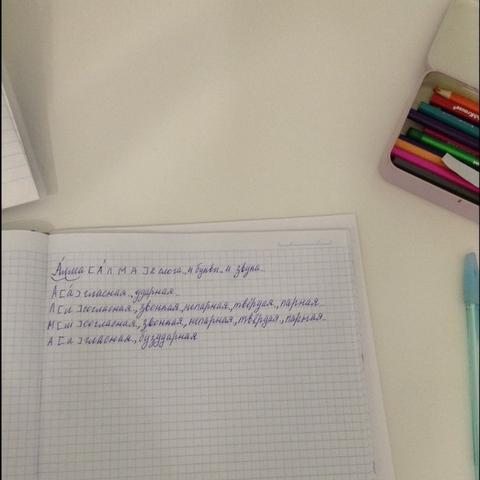 Алма [А́ Л М А] 2 слога, 4 буквы, 4 звука.
А [а́] гласная, ударная
Л [л] согласная, звонкая, непарная, твёрдая, парная
М [м] согласная, звонкая, непарная, твёрдая, парная
А [а] гласная, буздударная